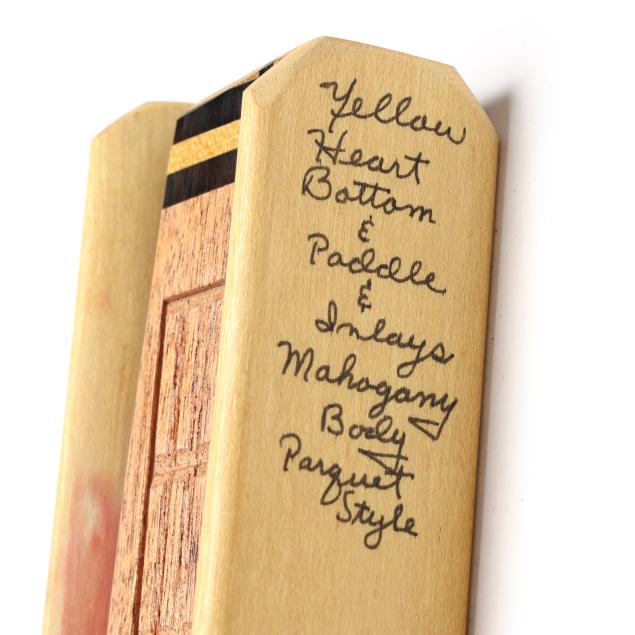 Yellow
Heart
Bottom
&
Paddle
&
Inlays
Mahogany
Body
Parquet
Style